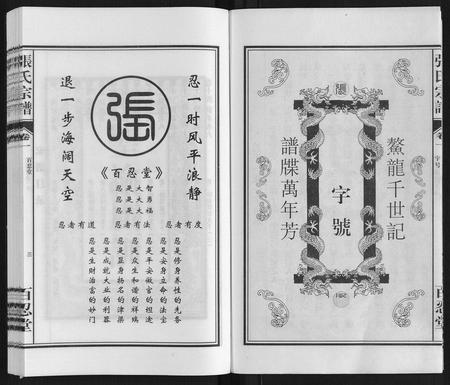 張氏宗譜
卷一
字号
百忍堂
鰲龍千世記
字號
譜牒萬年芳
忍一时风平浪静
退一步海阔天空
張
《百忍堂》
忍是大智
忍是大勇
忍是大福
忍者有度
忍者有法
忍者有道
忍是修身养性的先务
忍是安身立命的法宝
忍是平安做官的坦途
忍是众生和谐的祥瑞
忍是显身扬名的津梁
忍是成就大业的利器
忍是生财治富的妙门
張氏宗譜
卷一
百忍堂
三
百忍堂